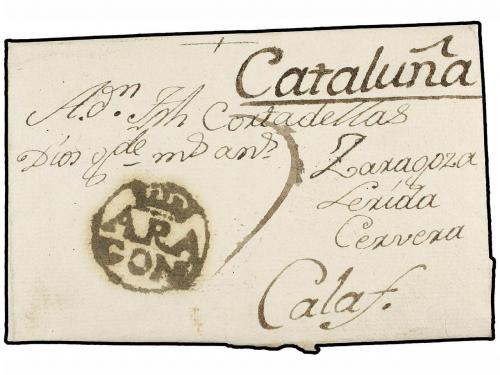 Cataluña
A Dn. Jph Cortadellas
Dios gde ms ans
Zaragoza
Lerida
Cervera
Calaf.
ARA
GON